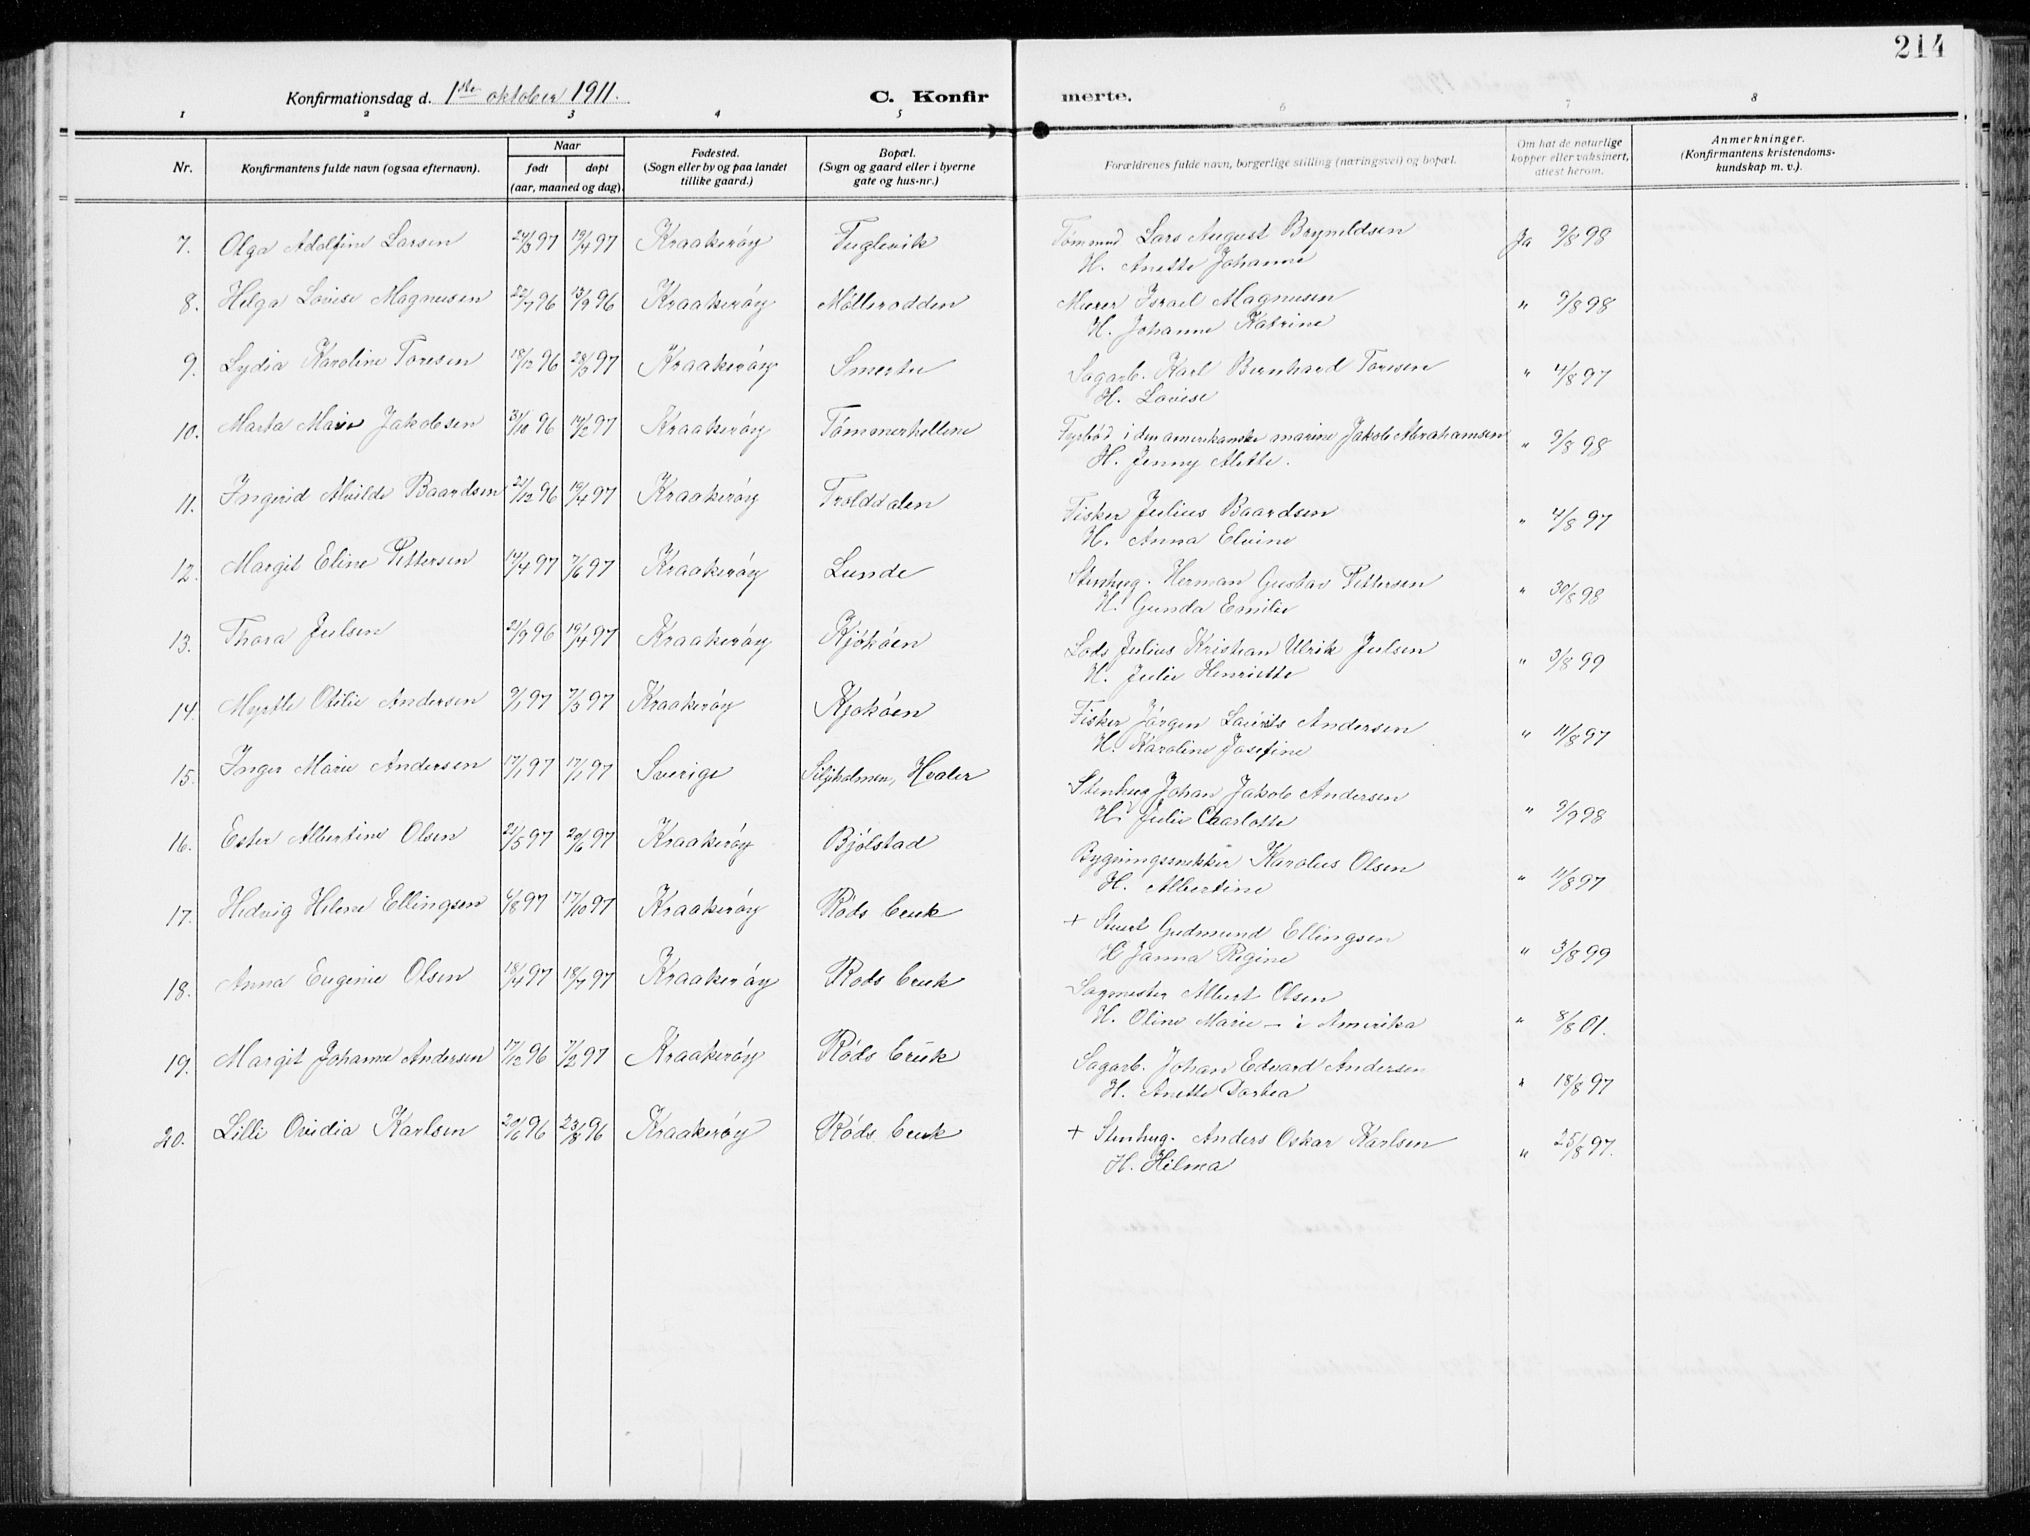 214
Konfirmationsdag d. 1ste oktober 1911. C. Konfirmerte.
1 2 3 4 5 6 7 8
Nr. Konfirmantens fulde navn (ogsaa efternavn). Naar født døpt (aar, maaned og dag). Fødested. (Sogn eller by og paa landet tillike gaard.) Bopæl. (Sogn og gaard eller i byerne gate og hus-nr.) Forældrenes fulde navn, borgerlige stilling (næringsvei) og bopæl. Om hat de naturlige kopper eller vaksinert, attest herom. Anmerkninger. (Konfirmantens kristendomskundskap m. v.).
7. Olga Adolfine Larsen 24/3 97 19/4 97 Kraakerøy Fuglevik Tømmmd. Lars August Brynildsen Ja 9/8 98
H. Anette Johanne
8. Helga Lovise Magnusen 22/7 96 13/9 96 Kraakerøy Møllerodden Murer Israel Magnusen " 9/8 98
H. Johanne Katrine
9. Lydia Karoline Toresen 18/12 96 28/3 97 Kraakerøy Smertu Sagarb. Karl Bernhard Toresen " 4/8 97
H. Lovise
10. Marta Marie Jakobsen 31/10 96 14/2 97 Kraakerøy Tømmerhellene Fyrbød. i den amerikanske marine Jakob Abrahamsen " 9/8 98
H. Jenny Alette.
11. Ingerid Alvilde Baardsen 21/12 96 19/4 97 Kraakerøy Trolddalen Fisker Julius Baardsen " 4/8 97
H. Anna Elvine
12. Margit Eline Pettersen 14/4 97 7/6 97 Kraakerøy Lunde Stenhug. Herman Gustav Pettersen " 30/8 98
H. Gunda Emilie
13. Thora Julsen 21/9 96 19/4 97 Kraakerøy Kjøkøen Lods Julius Kristian Ulrik Julsen " 3/8 99
H. Julie Henriette
14. Myrtle Otilie Andersen 9/1 97 7/3 97 Kraakerøy Kjøkøen Fisker Jørgen Laurits Andersen " 11/8 97
H. Karoline Josefine
15. Inger Marie Andersen 17/1 97 17/1 97 Sverige Siljeholmen, Hvaler Stenhug Johan Jakob Andersen " 9/9 98
H. Julie Charlotte
16. Ester Albertine Olsen 21/5 97 20/6 97 Kraakerøy Bjølstad Bygningssnekker Karolus Olsen " 11/8 97
H. Albertine
17. Hedvig Helene Ellingsen 6/8 97 17/10 97 Kraakerøy Røds bruk + Stuert Gudmund Ellingsen " 3/8 99
H Janna Regine
18. Anna Eugenie Olsen 18/4 97 18/7 97 Kraakerøy Røds bruk Sagmester Albert Olsen " 8/8 01.
H. Oline Marie - i Amerika
19. Margit Johanne Andersen 17/12 96 7/2 97 Kraakerøy Røds bruk Sagarb. Johan Edvard Andersen " 18/8 97
H. Anette Dortea
20. Lilli Ovidia Karlsen 20/6 96 23/8 96 Kraakerøy Røds bruk + Stenhug. Anders Oskar Karlsen " 25/8 97.
H. Hilma